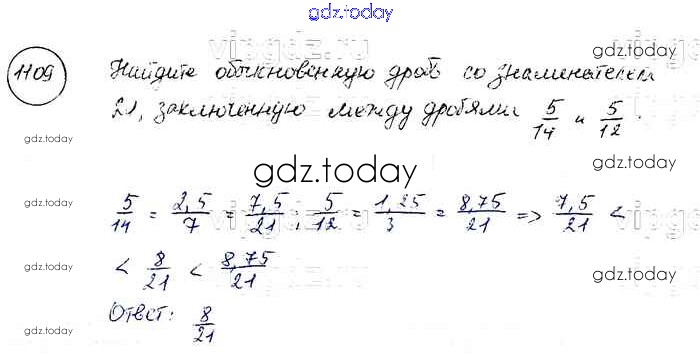 gdz.today
1109 Найдите обыкновенную дробь со знаменателем
21, заключенную между дробями 5/14 и 5/12.
gdz.today
gdz.today
gdz.today
5/14 = 2,5/7 = 7,5/21; 5/12 = 1,25/3 = 8,75/21 => 7,5/21 <
< 8/21 < 8,75/21
Ответ: 8/21
gdz.today
gdz.today
gdz.today
gdz.today
gdz.today